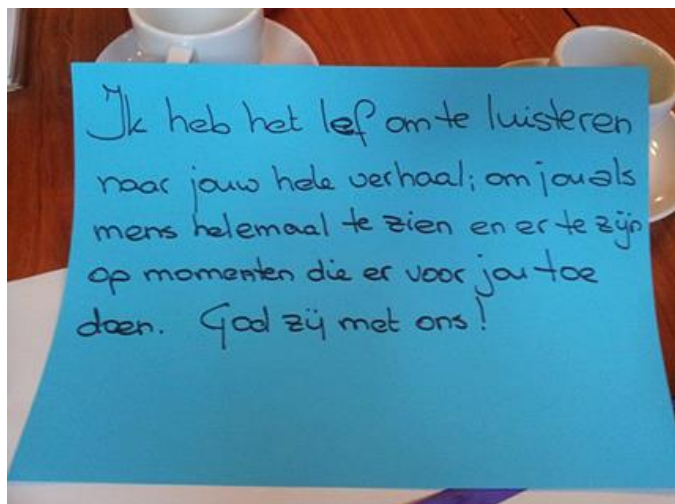 Ik heb het lef om te luisteren
naar jouw hele verhaal; om jou als
mens helemaal te zien en er te zijn
op momenten die er voor jou toe
doen. God zij met ons!